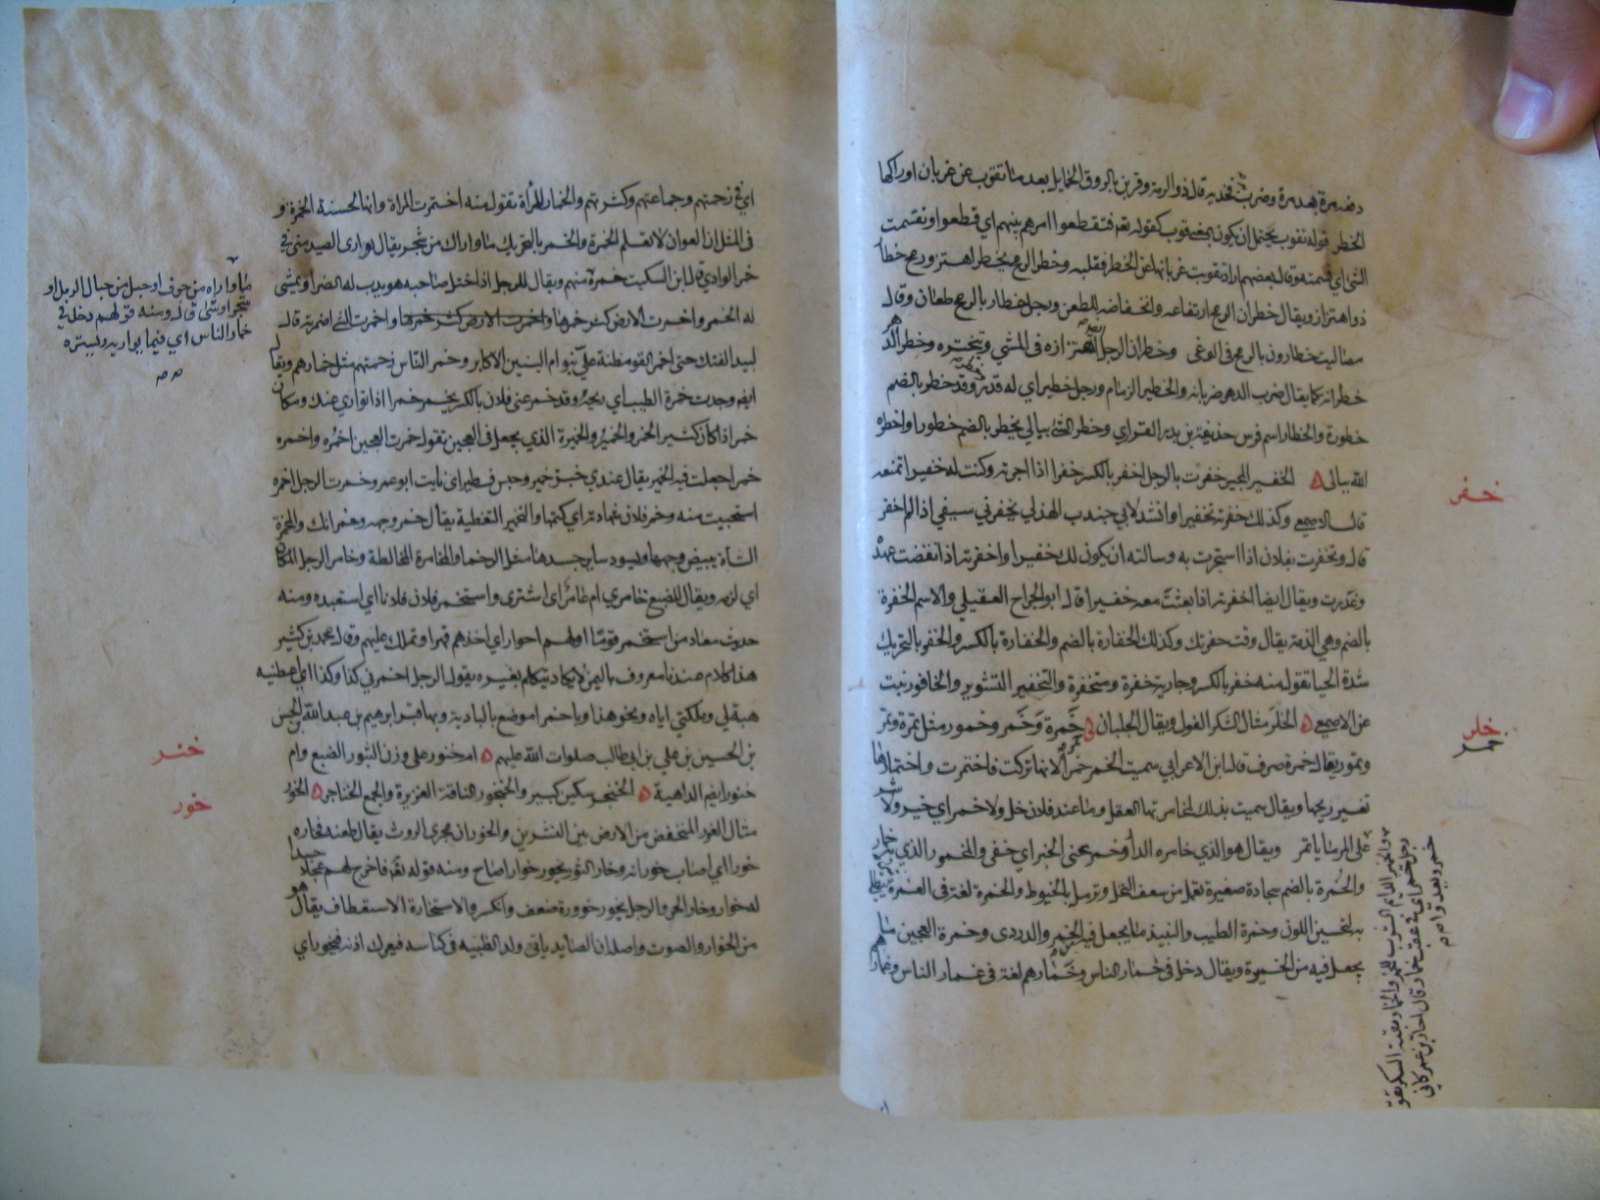 دفعه مرة بعد مرة وضرب فخذيه قال ذو الرمة وقربن بالزرق الجمايل بعد ما تقوب عن غربان اوراكها
الخطر قوله تقوب يحتمل ان يكون بمعنى قوب كقوله تعم فتقطعوا امرهم بينهم اي قطعوا وتقسمت
الشي اي قسمته وقال بعضهم اراد تقوبت غربانها عن الخطر فقلبه وخطر الرمح يخطر اهتز ورمح خطار
ذو اهتزاز ويقال خطران الرمح ارتفاعه وانخفاضه للطعن ورجل خطار بالرمح طعان وقال
مصاليت خطارون بالرمح في الوغى وخطران الرجل اهتزازه في المشي وتبختره وخطر الدهر
خطرانه كما يقال ضرب الدهر ضربانه والخطير الزمام ورجل خطير اي له قدر وقد خطر بالضم
خطورة والخطار اسم فرس حذيفة بن بدر الفزاري وخطر الشي ببالي يخطر بالضم خطورا واخطره
الله ببالي ۵ الخفير المجير خفرت بالرجل اخفر بالكسر خفرا اذا اجرته وكنت له خفيرا تمنعه
خفر
قال الاصمعي وكذلك خفرته تخفيرا وانشد لابي جندب الهذلي يخفرني سيفي اذا لم اخفر
قال وتخفرت بفلان اذا استجرت به وسالته ان يكون لك خفيرا واخفرته اذا نقضت عهده
وغدرت ويقال ايضا اخفرته اذا بعثت معه خفيرا قال ابو الجراح العقيلي والاسم الخفرة
بالضم وهي الذمة يقال وفت خفرتك وكذلك الخفارة بالضم والخفارة بالكسر والخفر بالتحريك
شدة الحيا تقول منه خفر بالكسر وجارية خفرة ومتخفرة والتخفير التشوير والخافور نبت
عن الاصمعي ۵ الخلر مثال السكر الفول ويقال الجلبان ۵ خمرة وخمر وخمور مثل تمرة وتمر
خلر
خمر
وتمور يقال خمرة صرف قال ابن الاعرابي سميت الخمر خمرا لانها تركت فاختمرت واختمارها
تغير ريحها ويقال سميت بذلك لمخامرتها العقل وما عند فلان خل ولا خمر اي خير ولا شر
على المرء ما ياتمر ويقال هو الذي خامره الدا وخمر عني الخبر اي خفي والمخمور الذي به خمار
والخمرة بالضم سجادة صغيرة تعمل من سعف النخل وترمل بالخيوط والخمرة لغة في الغمرة تطلى
به لتحسين اللون وخمرة الطيب والنبيذ ما يجعل فيه الخمر والدردي وخمرة العجين ما
يجعل فيه من الخميرة ويقال دخل في خمار الناس وخمارهم لغة في غمار الناس وغمارهم
والخمير الدايم الشرب للخمر والخمار بقية السكر تقول
رجل خمر اي في عقب خمار قال احار بن عمرو كاني
خمر ويعدو
اي في زحمتهم وجماعتهم وكثرتهم والخمار للمرأة تقول منه اختمرت المراة وانها لحسنة الخمرة و
في المثل ان العوان لا تعلم الخمرة والخمر بالتحريك ما واراك من شجر يقال توارى الصيد مني في
خمر الوادي قال ابن السكيت خمرة منهم ويقال للرجل اذا ختل صاحبه هو يدب له الضراء ويمشي
ما واراه من جرف او حبل من حبال الرمل او
شجر او شي قال ومنه قولهم دخل في
خمار الناس اي فيما يواريه ويستره
له الخمر واخمرت الارض كثر خمرها واخمرت الارض كثر خمرها واخمرت الشي اضمرته قال
لبيد الفتك حتى اخمر القوم ظنة علي بنو ام البنين الاكابر وخمر الناس زحمتهم مثل خمارهم ويقال
ايضم وجدت خمرة الطيب اي ريحه وقد خمر عني فلان بالكسر يخمر خمرا اذا توارى عنك ومكان
خمر اذا كان كثير الخمر والخمير والخميرة الذي يجعل في العجين تقول خمرت العجين اخمره واخمره
خمرا جعلت فيه الخمير يقال عندي خبز خمير وحيس فطير اي بايت ابو عمرو وخمرت الرجل اخمره
استحييت منه وخمر فلان شهادته اي كتمها والتخمير التغطية يقال خمر وجهه وخمر اناك والمخمرة
الشاة يبيض وجهها ويسود ساير جسدها مثل الرخما والمخامرة المخالطة وخامر الرجل المكان
اي لزمه ويقال للضبع خامري ام عامر اي استتري واستخمر فلان فلانا اي استعبده ومنه
حديث معاذ من استخمر قوما اولهم احرار اي اخذهم قهرا وتملك عليهم وقال محمد بن كثير
هذا كلام عندنا معروف باليمن لا يكاد يتكلم بغيره يقول الرجل اخمرني كذا وكذا اي اعطنيه
هبة لي وملكني اياه ونحو هذا وباخمرا موضع بالبادية وبها قبر ابرهيم بن عبد الله بن الحسن
بن الحسين بن علي بن ابي طالب صلوات الله عليهم ۵ ام خنور على وزن التنور الضبع وام
خنر
خنور ايضم الداهية ۵ الخنجر سكين كبير والخنجور الناقة الغزيرة والجمع الخناجر ۵ الخور
خور
مثال الغور المنخفض من الارض بين النشزين والخوران مجرى الروث يقال طعنه فخاره
خورا اي اصاب خورانه وخار الثور يخور خوارا صاح ومنه قوله تعم فاخرج لهم عجلا جسدا
له خوار وخار الحر والرجل يخور خوورة ضعف وانكسر والاستخارة الاستعطاف يقال هو
من الخوار والصوت واصله ان الصايد ياتي ولد الظبية في كناسه فيعرك اذنه فيخور اي